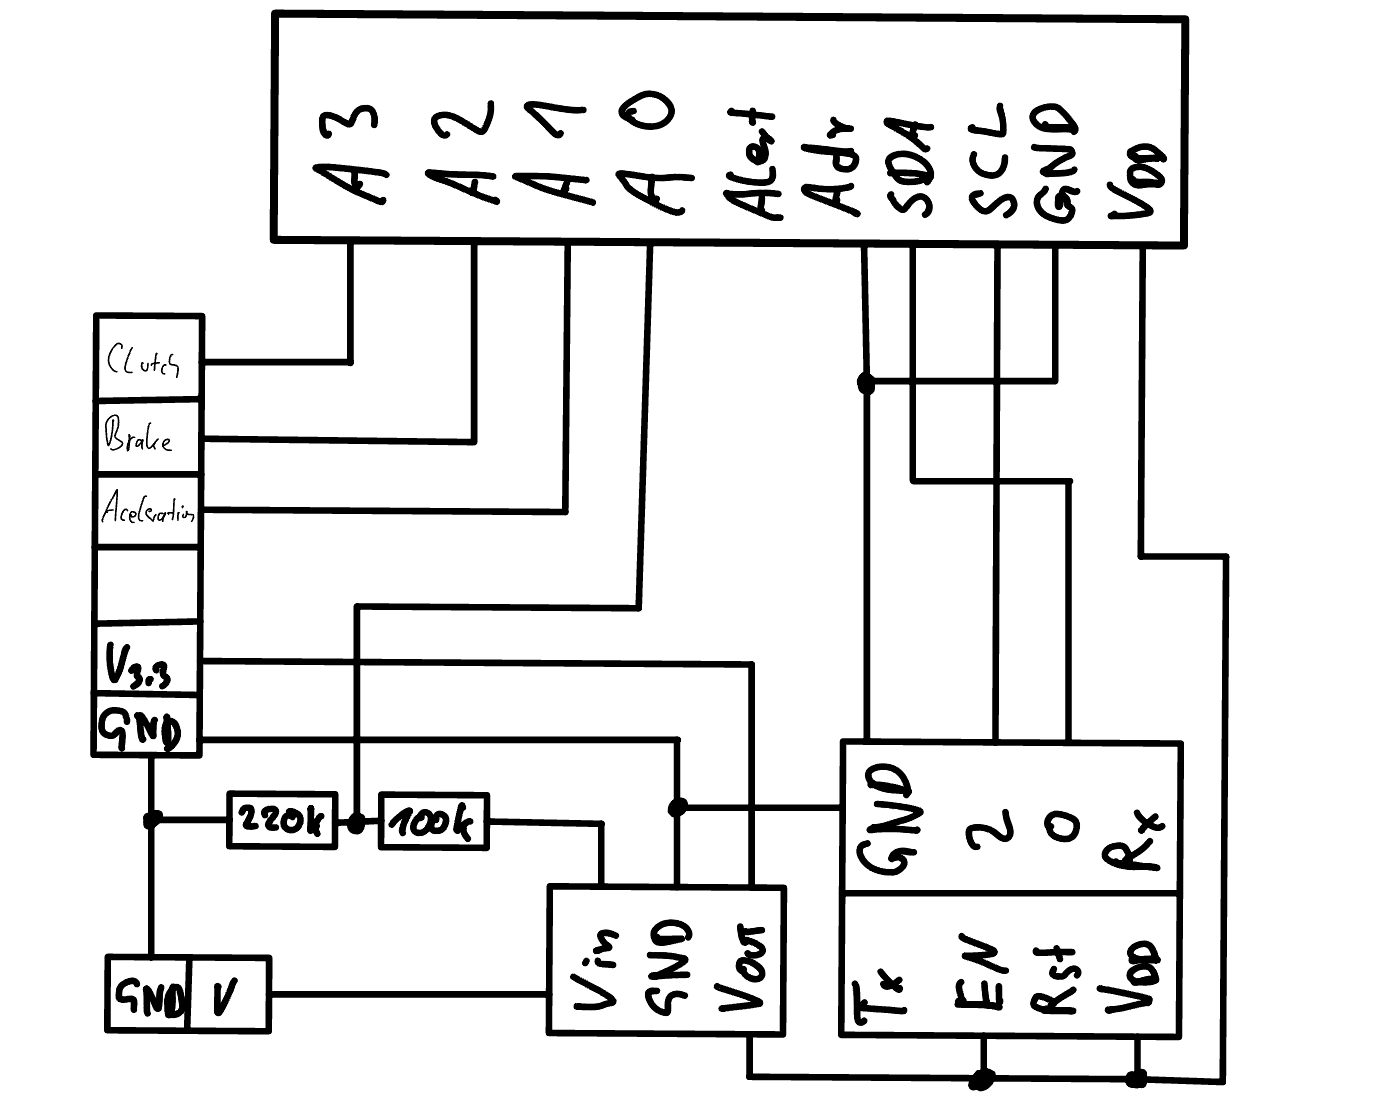 A3 A2 A1 A0 ALert Adr SDA SCL GND VDD
CLutch
Brake
Aceleration
V3.3
GND
220k 100k
GND 2 0 Rx
Vin GND Vout
Tx EN Rst VDD
GND V